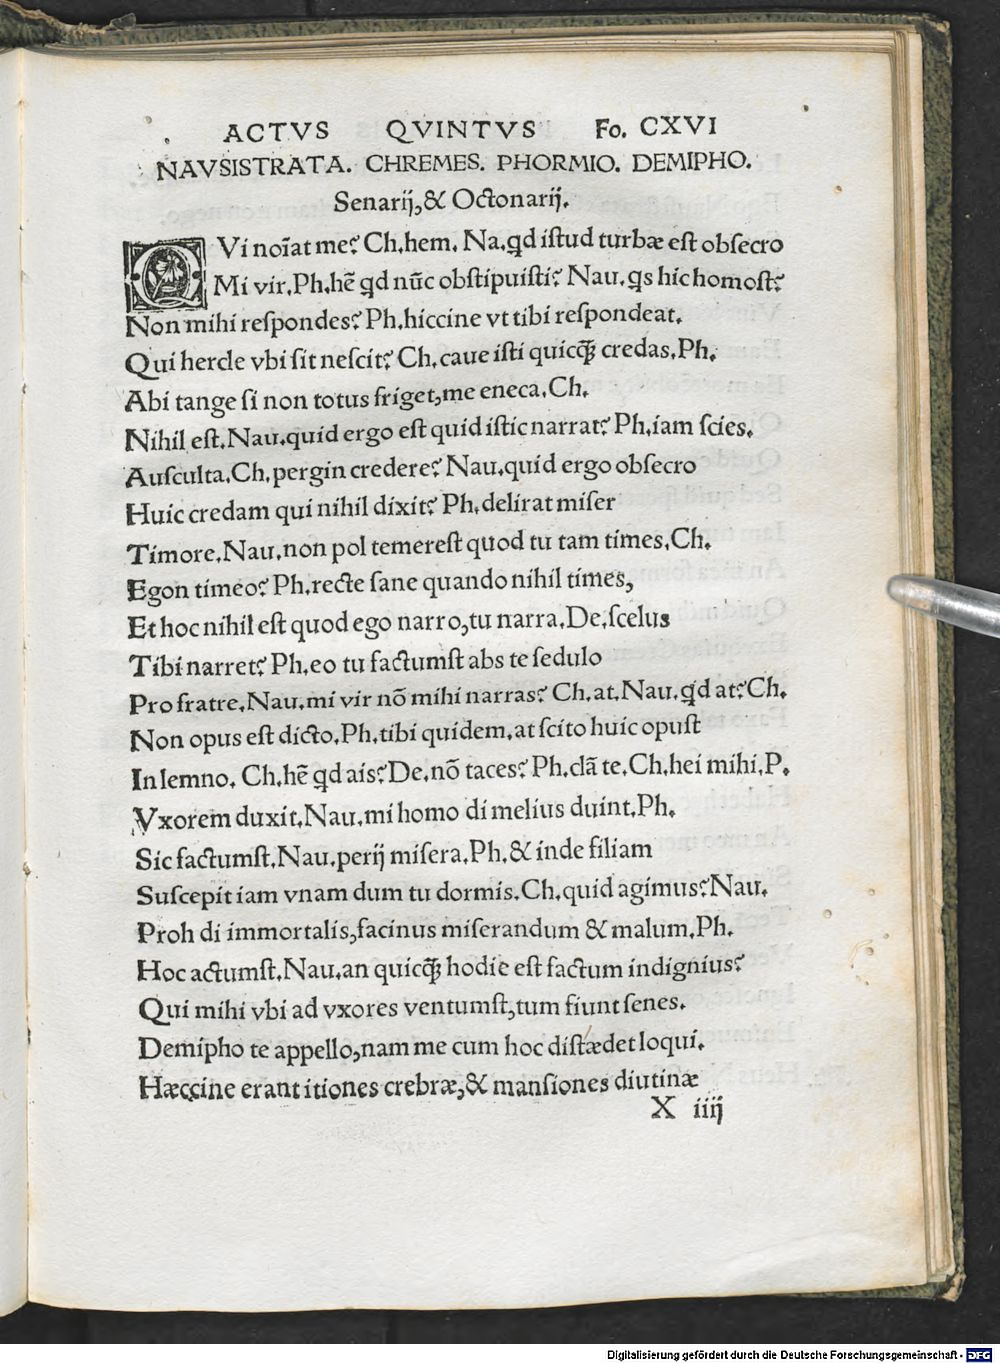 ACTVS QVINTVS Fo. CXVI
NAVSISTRATA. CHREMES. PHORMIO. DEMIPHO.
Senarij, & Octonarij.
QVi noĩat me? Ch. hem. Na. qd istud turbæ est obsecro
Mi vir. Ph. hẽ qd nũc obstipuisti? Nau. qs hic homost?
Non mihi respondes? Ph. hiccine vt tibi respondeat.
Qui hercle vbi sit nescit? Ch. caue isti quicq̃ credas. Ph.
Abi tange si non totus friget, me eneca. Ch.
Nihil est. Nau. quid ergo est quid istic narrat? Ph. iam scies.
Ausculta. Ch. pergin credere? Nau. quid ergo obsecro
Huic credam qui nihil dixit? Ph. delirat miser
Timore. Nau. non pol temerest quod tu tam times. Ch.
Egon timeo? Ph. recte sane quando nihil times,
Et hoc nihil est quod ego narro, tu narra. De. scelus
Tibi narret? Ph. eo tu factumst abs te sedulo
Pro fratre. Nau. mi vir nõ mihi narras? Ch. at. Nau. qd at? Ch.
Non opus est dicto. Ph. tibi quidem, at scito huic opust
In lemno. Ch. hẽ qd ais? De. nõ taces? Ph. clã te. Ch. hei mihi. P.
Vxorem duxit. Nau. mi homo di melius duint. Ph.
Sic factumst. Nau. perij misera. Ph. & inde filiam
Suscepit iam vnam dum tu dormis. Ch. quid agimus? Nau.
Proh di immortalis, facinus miserandum & malum. Ph.
Hoc actumst. Nau. an quicq̃ hodie est factum indignius?
Qui mihi vbi ad vxores ventumst, tum fiunt senes.
Demipho te appello, nam me cum hoc distædet loqui.
Hæccine erant itiones crebræ, & mansiones diutinæ
X iiij
Digitalisierung gefördert durch die Deutsche Forschungsgemeinschaft - DFG